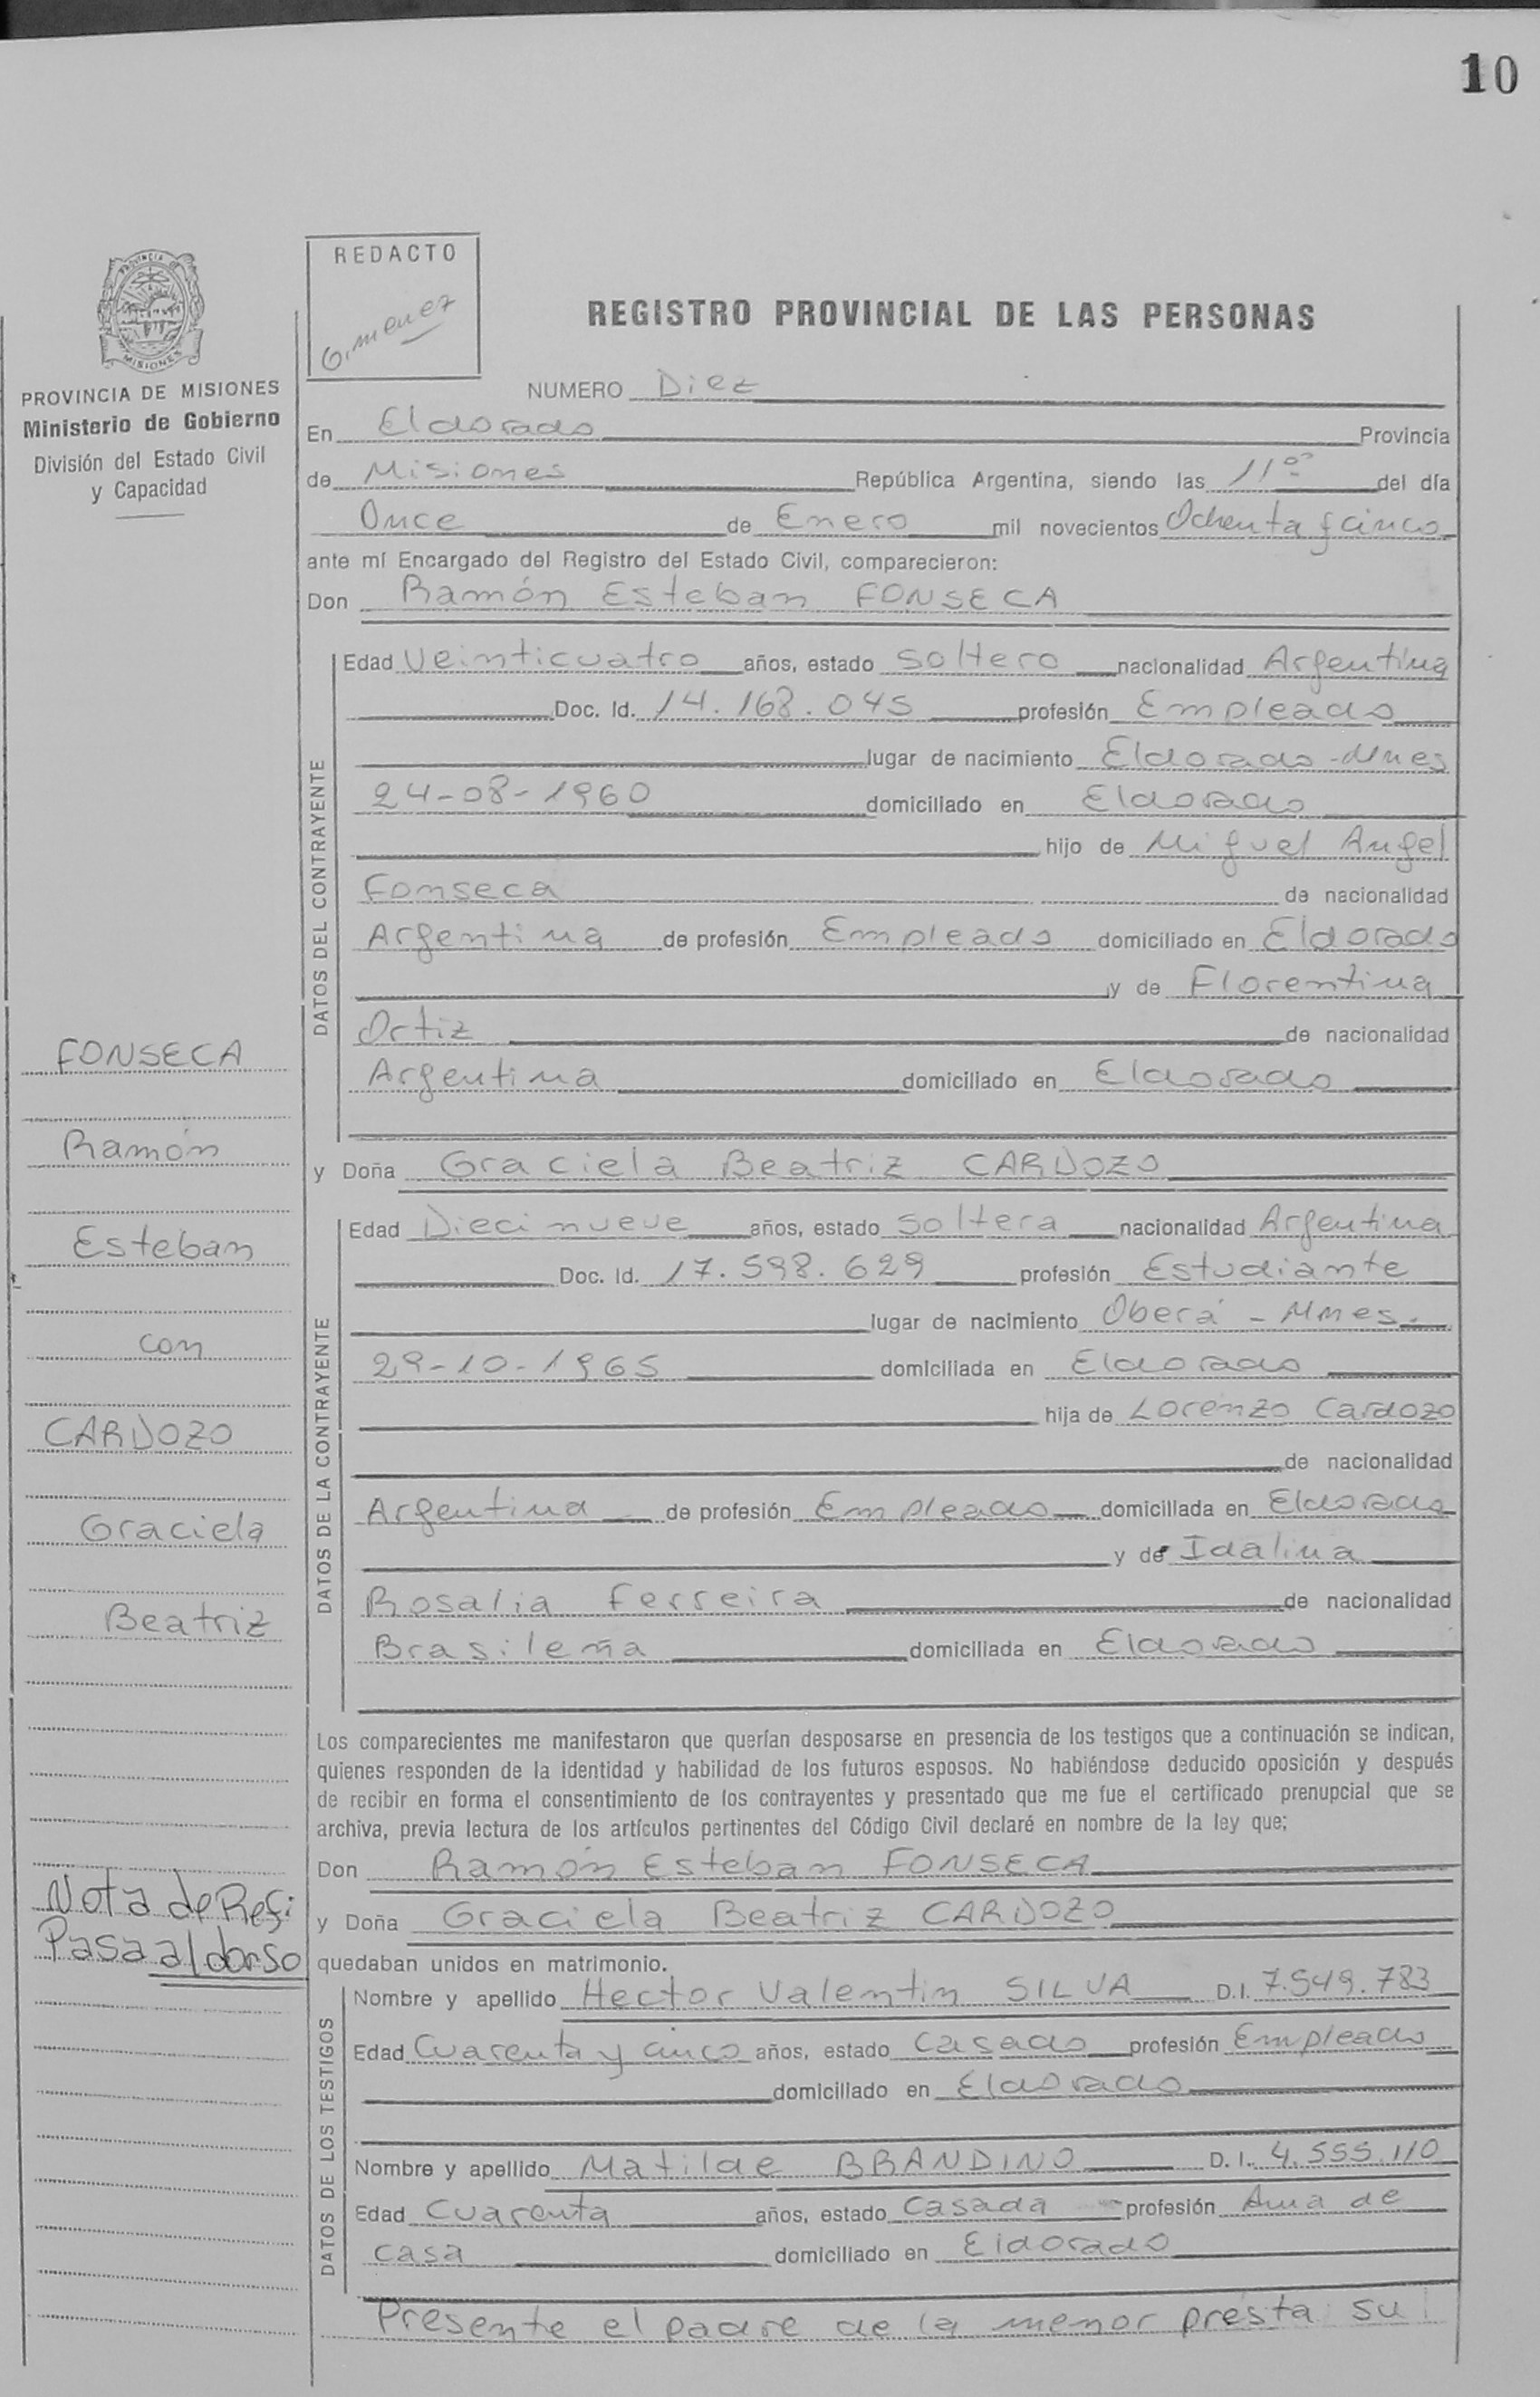 10
REDACTO
Gimenez
PROVINCIA DE MISIONES
Ministerio de Gobierno
División del Estado Civil
y Capacidad
REGISTRO PROVINCIAL DE LAS PERSONAS
NUMERO Diez
En Eldorado Provincia
de Misiones República Argentina, siendo las 11⁰⁰ del día
Once de Enero mil novecientos Ochenta y cinco
ante mí Encargado del Registro del Estado Civil, comparecieron:
Don Ramón Esteban FONSECA
DATOS DEL CONTRAYENTE
Edad Veinticuatro años, estado soltero nacionalidad Argentina
Doc. Id. 14.168.045 profesión Empleado
lugar de nacimiento Eldorado - Mnes
24-08-1960 domiciliado en Eldorado
hijo de Miguel Angel
Fonseca de nacionalidad
Argentina de profesión Empleado domiciliado en Eldorado
y de Florentina
Ortiz de nacionalidad
Argentina domiciliado en Eldorado
y Doña Graciela Beatriz CARDOZO
DATOS DE LA CONTRAYENTE
Edad Diecinueve años, estado soltera nacionalidad Argentina
Doc. Id. 17.598.629 profesión Estudiante
lugar de nacimiento Oberá - Mnes.
29-10-1965 domiciliada en Eldorado
hija de Lorenzo Cardozo
de nacionalidad
Argentina de profesión Empleado domiciliada en Eldorado
y de Idalina
Rosalia Ferreira de nacionalidad
Brasileña domiciliada en Eldorado
Los comparecientes me manifestaron que querían desposarse en presencia de los testigos que a continuación se indican,
quienes responden de la identidad y habilidad de los futuros esposos. No habiéndose deducido oposición y después
de recibir en forma el consentimiento de los contrayentes y presentado que me fue el certificado prenupcial que se
archiva, previa lectura de los artículos pertinentes del Código Civil declaré en nombre de la ley que:
Don Ramón Esteban FONSECA
y Doña Graciela Beatriz CARDOZO
quedaban unidos en matrimonio.
DATOS DE LOS TESTIGOS
Nombre y apellido Hector Valentin SILVA D.I. 7.549.783
Edad Cuarenta y cinco años, estado casado profesión Empleado
domiciliado en Eldorado
Nombre y apellido Matilde BRANDINO D.I. 4.555.110
Edad Cuarenta años, estado casada profesión Ama de
casa domiciliado en Eldorado
Presente el padre de la menor presta su
FONSECA
Ramón
Esteban
con
CARDOZO
Graciela
Beatriz
Nota de
Pasa al dorso